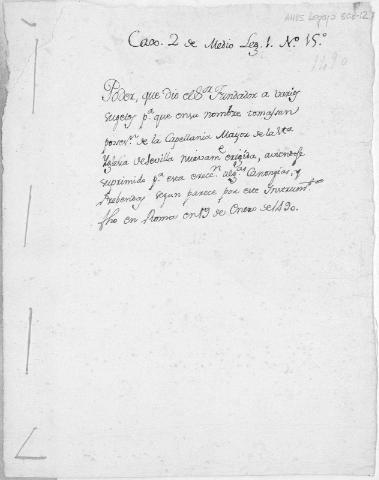 AHUS Legajo 508-12
Caxo. 2 de Medio Leg. 1. Nº 15º
1490
Poder, que dio el Sr. Fundador a varios
sugetos pª que en su nombre tomasen
poses.n de la Capellania Mayor de la Sta
Yglesia de Sevilla nuevam.e erigida, aviendose
suprimido pª esta erecc.n alg.as Canongias, y
Prebendas segun parece por este Instrum.to
fho en Roma en 19 de Enero de 1490.